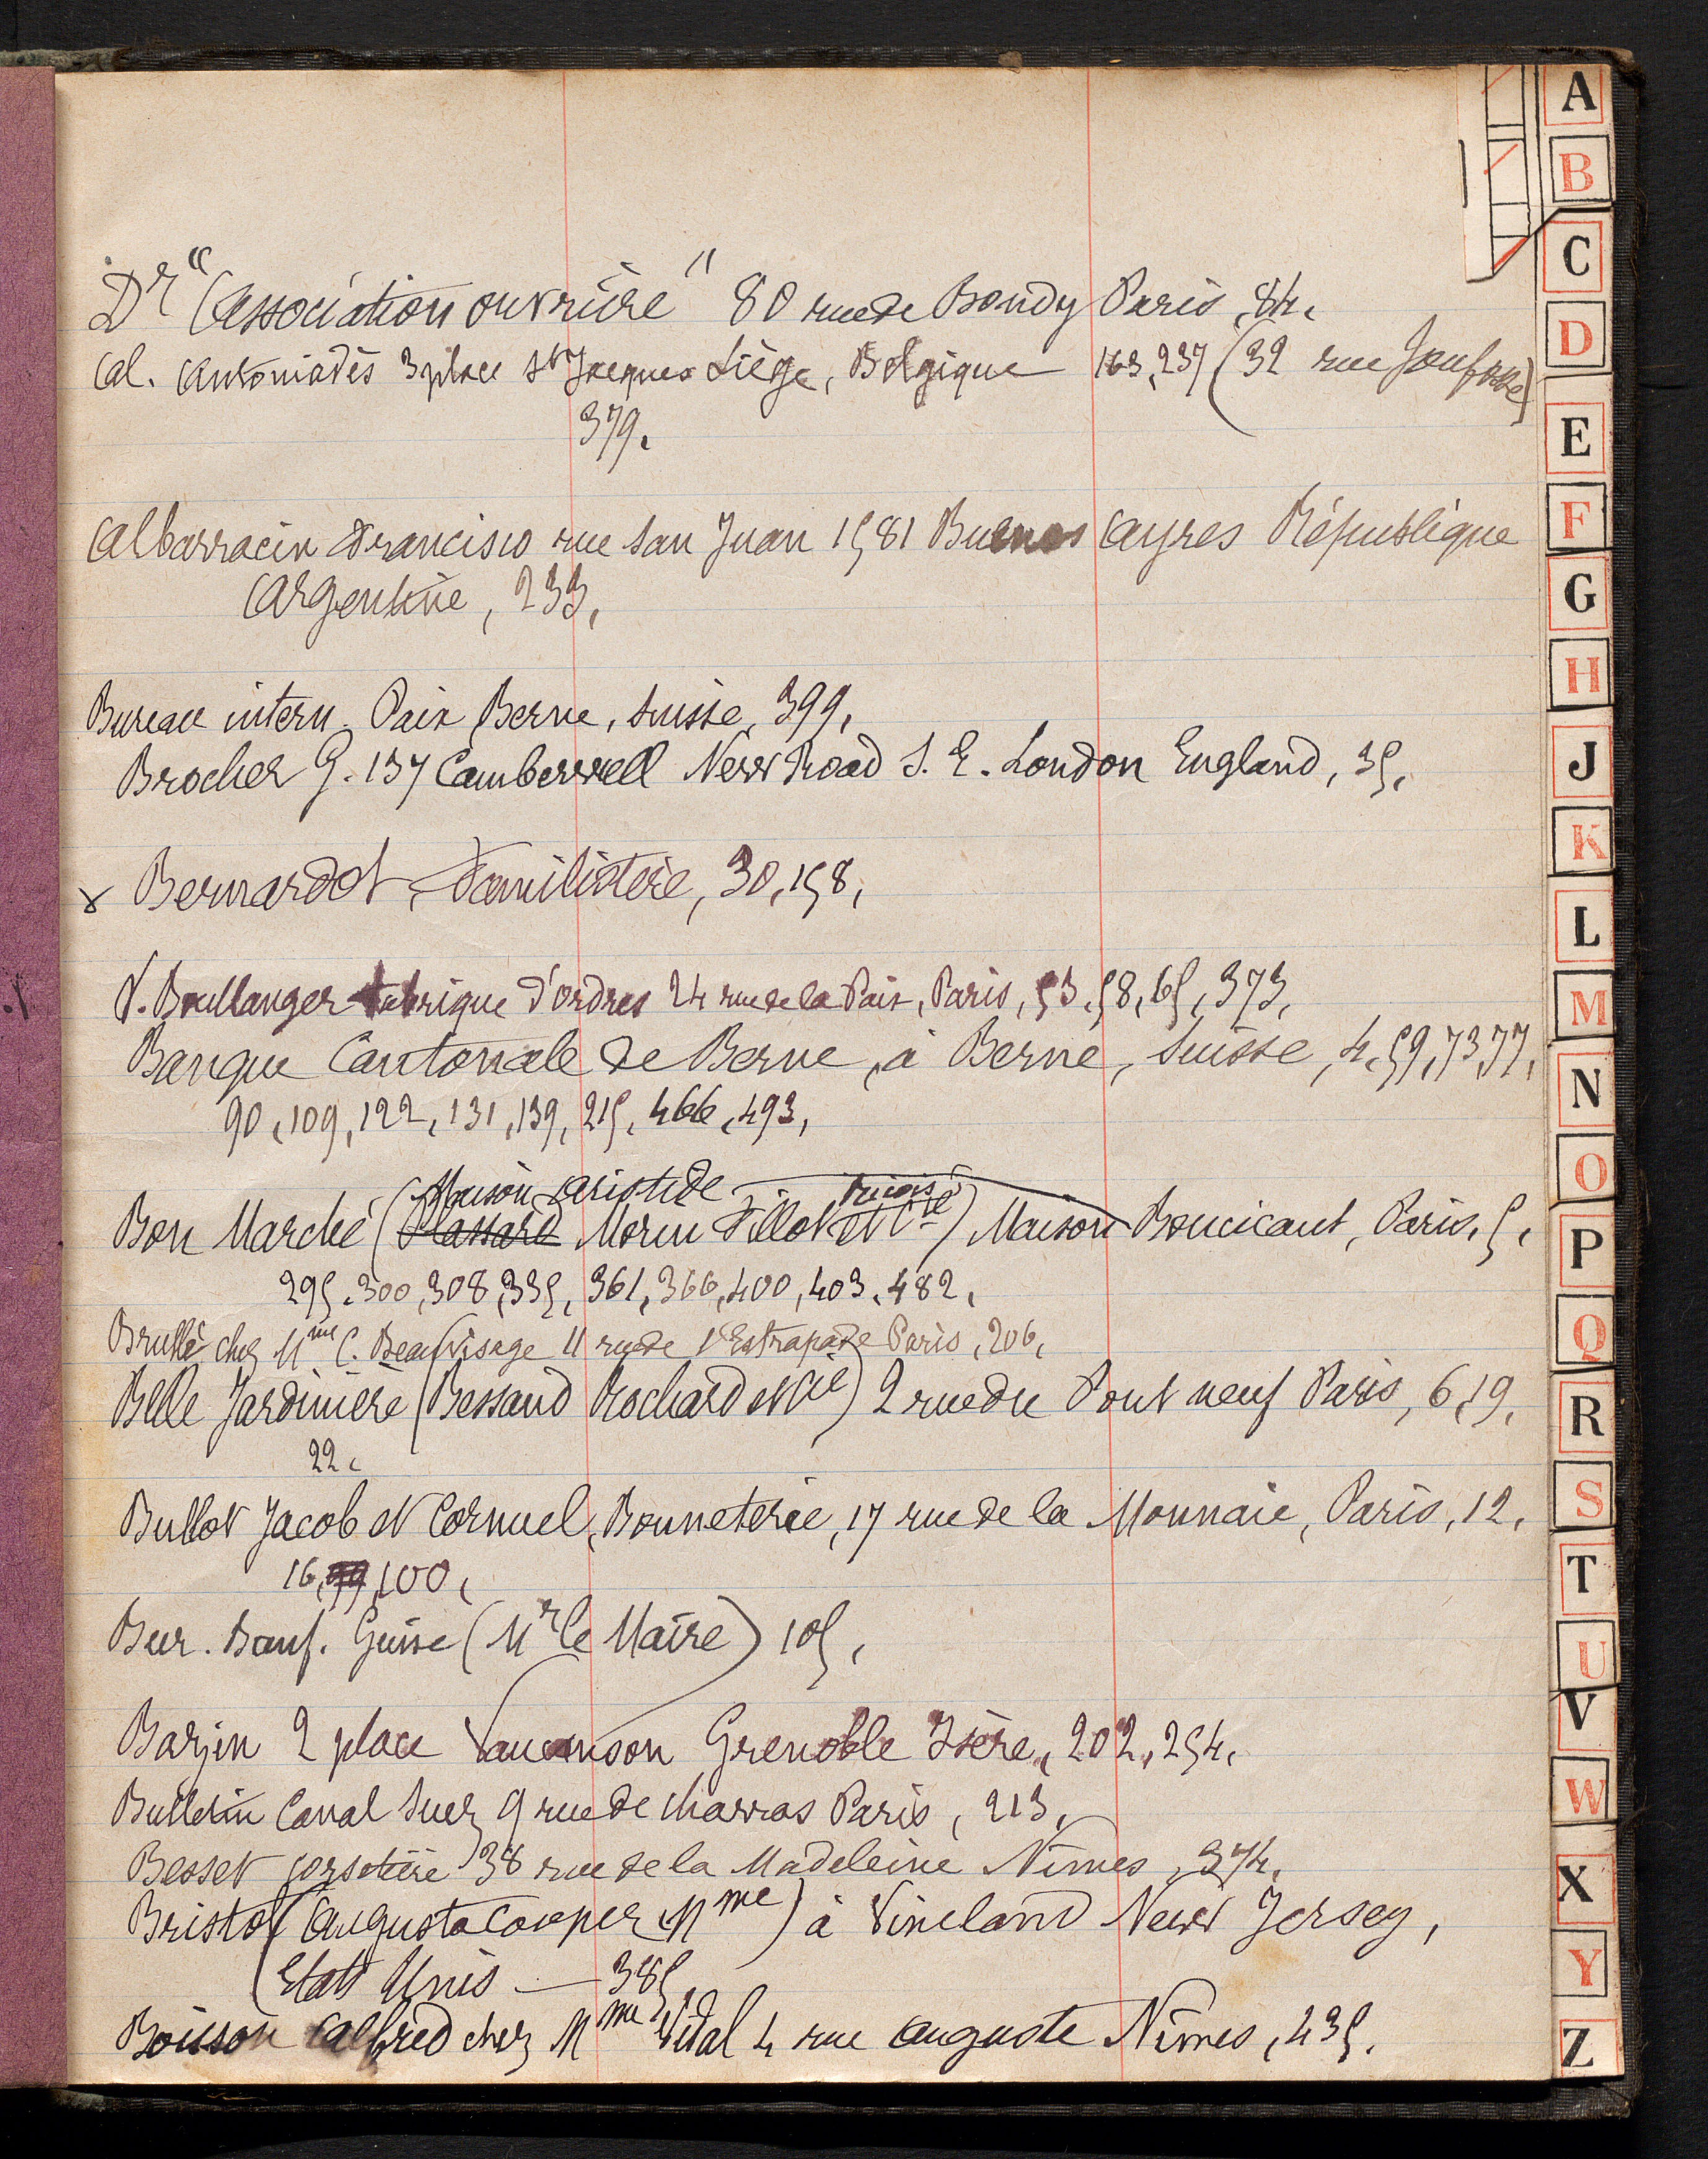 Dr "Association ouvrière" 80 rue de Bondy Paris, 84,
Al. Antoniadès 3 place St Jacques Liège, Belgique 163, 237 (32 rue Jonfosse)
379,
Albarracin Francisco rue San Juan 1581 Buenos Ayres République
Argentine, 233,
Bureau intern. Paix Berne, Suisse, 399,
Brocher G. 137 Camberwell New Road S. E. London England, 35,
x Bernardot, Familistère, 30, 158,
V. Boullanger fabrique d'ordres 24 rue de la Paix, Paris, 53, 58, 65, 373,
Banque Cantonale de Berne, à Berne, Suisse, 4, 59, 73, 77,
90, 109, 122, 131, 139, 215, 466, 493,
Maison Aristide
Bon Marché (Plassard Morin Fillot et Cie) Maison Boucicaut, Paris, 5,
295, 300, 308, 335, 361, 366, 400, 403, 482,
Brullé chez Mme C. Beauvisage 11 rue de l'Estrapade Paris, 206,
Belle Jardinière (Bessand Rochard et Cie) 2 rue du Pont neuf Paris, 6, 19,
22,
Bullot Jacob et Cornuel, Bonneterie, 17 rue de la Monnaie, Paris, 12,
16, 99, 100,
Bur. Bienf. Guise (Mr le Maire) 105,
Barjin 2 place Vaucanson Grenoble Isère, 202, 254,
Bulletin Canal Suez 9 rue de Charras Paris, 213,
Besset corsetière 38 rue de la Madeleine Nîmes, 374,
Bristol (Augusta Cooper Mme) à Vineland New Jersey,
(Etats Unis — 385
Boisson Alfred chez Mme Vidal 4 rue Auguste Nîmes, 435,
A
B
C
D
E
F
G
H
J
K
L
M
N
O
P
Q
R
S
T
U
V
W
X
Y
Z